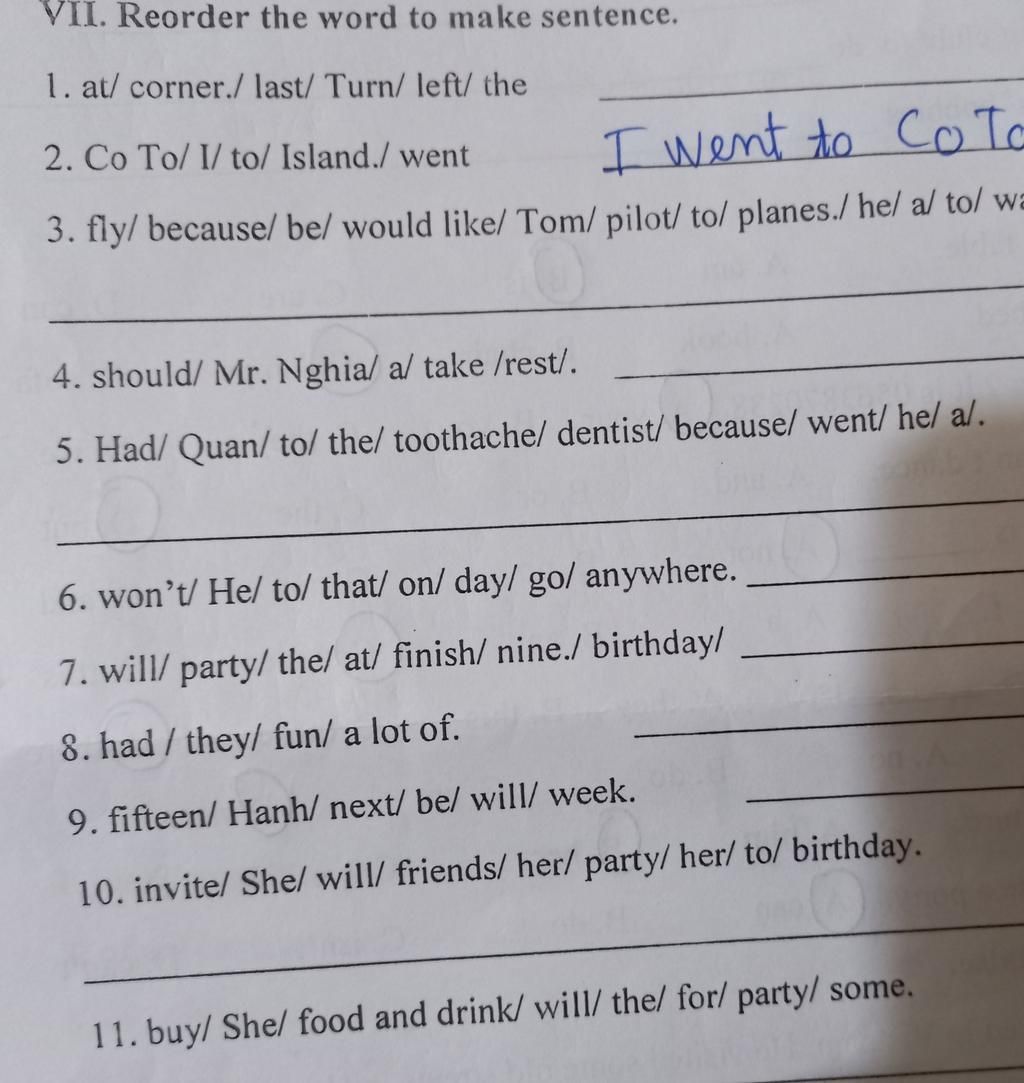 VII. Reorder the word to make sentence.
1. at/ corner./ last/ Turn/ left/ the
2. Co To/ I/ to/ Island./ went
I went to Co To
3. fly/ because/ be/ would like/ Tom/ pilot/ to/ planes./ he/ a/ to/
4. should/ Mr. Nghia/ a/ take /rest/.
5. Had/ Quan/ to/ the/ toothache/ dentist/ because/ went/ he/ a/.
6. won't/ He/ to/ that/ on/ day/ go/ anywhere.
7. will/ party/ the/ at/ finish/ nine./ birthday/
8. had / they/ fun/ a lot of.
9. fifteen/ Hanh/ next/ be/ will/ week.
10. invite/ She/ will/ friends/ her/ party/ her/ to/ birthday.
11. buy/ She/ food and drink/ will/ the/ for/ party/ some.